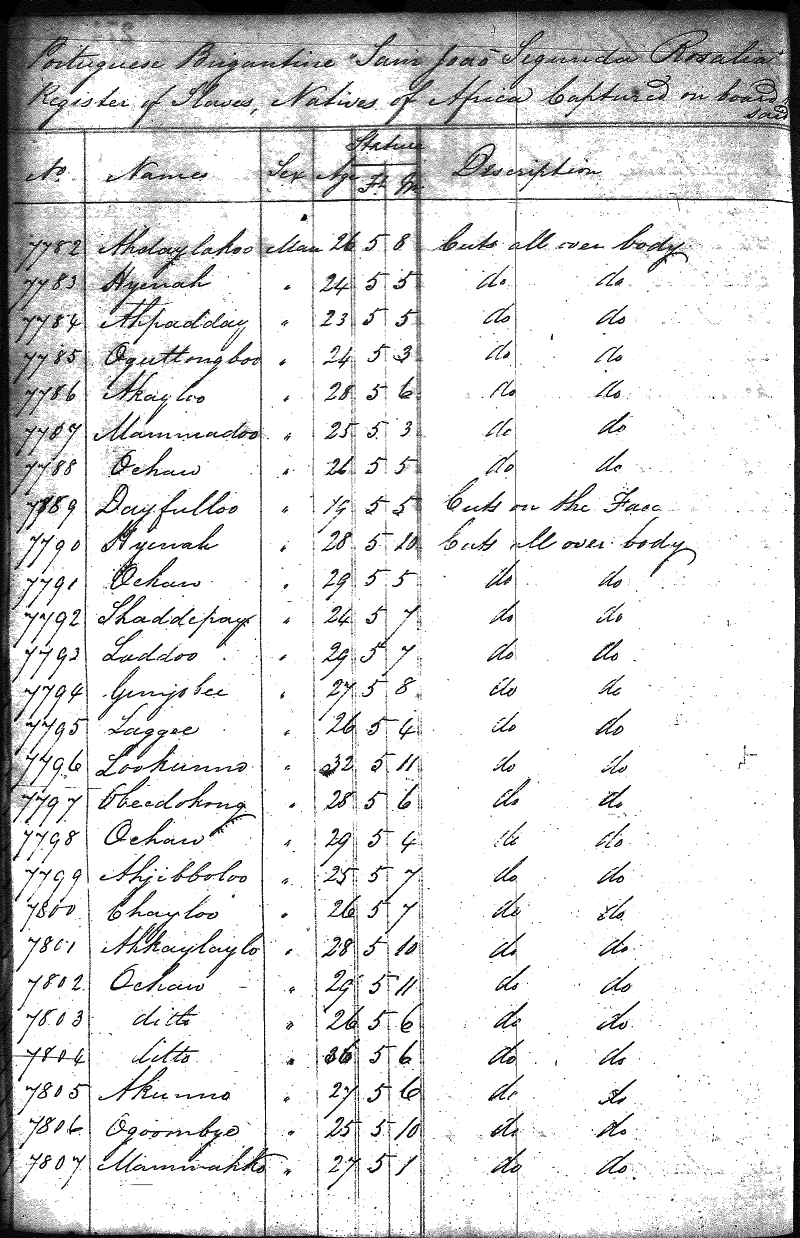 Portuguese Brigantine "Sam Joaõ Segunda Rosalia"
Register of Slaves, Natives of Africa Captured on board said
Stature
No. Names Sex Age Ft. In. Description
7782 Ahdaylahoo Man 26 5 8 Cuts all over body
7783 Hyenah " 24 5 5 do do
7784 Ahpadday " 23 5 5 do do
7785 Oguttongboo " 24 5 3 do do
7786 Akayloo " 28 5 6 do do
7787 Mammadoo " 25 5 3 do do
7788 Ochaw " 26 5 5 do do
7889 Dayfulloo " 19 5 5 Cuts on the Face
7790 Hyenah " 28 5 10 Cuts all over body
7791 Ochaw " 29 5 5 do do
7792 Shaddepay " 24 5 7 do do
7793 Laddoo " 29 5 7 do do
7794 " 27 5 8 do do
7795 Laggee " 26 5 4 do do
7796 Lookunno " 32 5 11 do do
7797 Obeedokong " 28 5 6 do do
7798 Ochaw " 29 5 4 do do
7799 Ahjibboloo " 25 5 7 do do
7800 Chayloo " 26 5 7 do do
7801 Ahkaylaylo " 28 5 10 do do
7802 Ochaw " 29 5 11 do do
7803 ditto " 26 5 6 do do
7804 ditto " 36 5 6 do do
7805 Akunno " 27 5 6 do do
7806 Ogoombye " 25 5 10 do do
7807 Mammahko " 27 5 1 do do